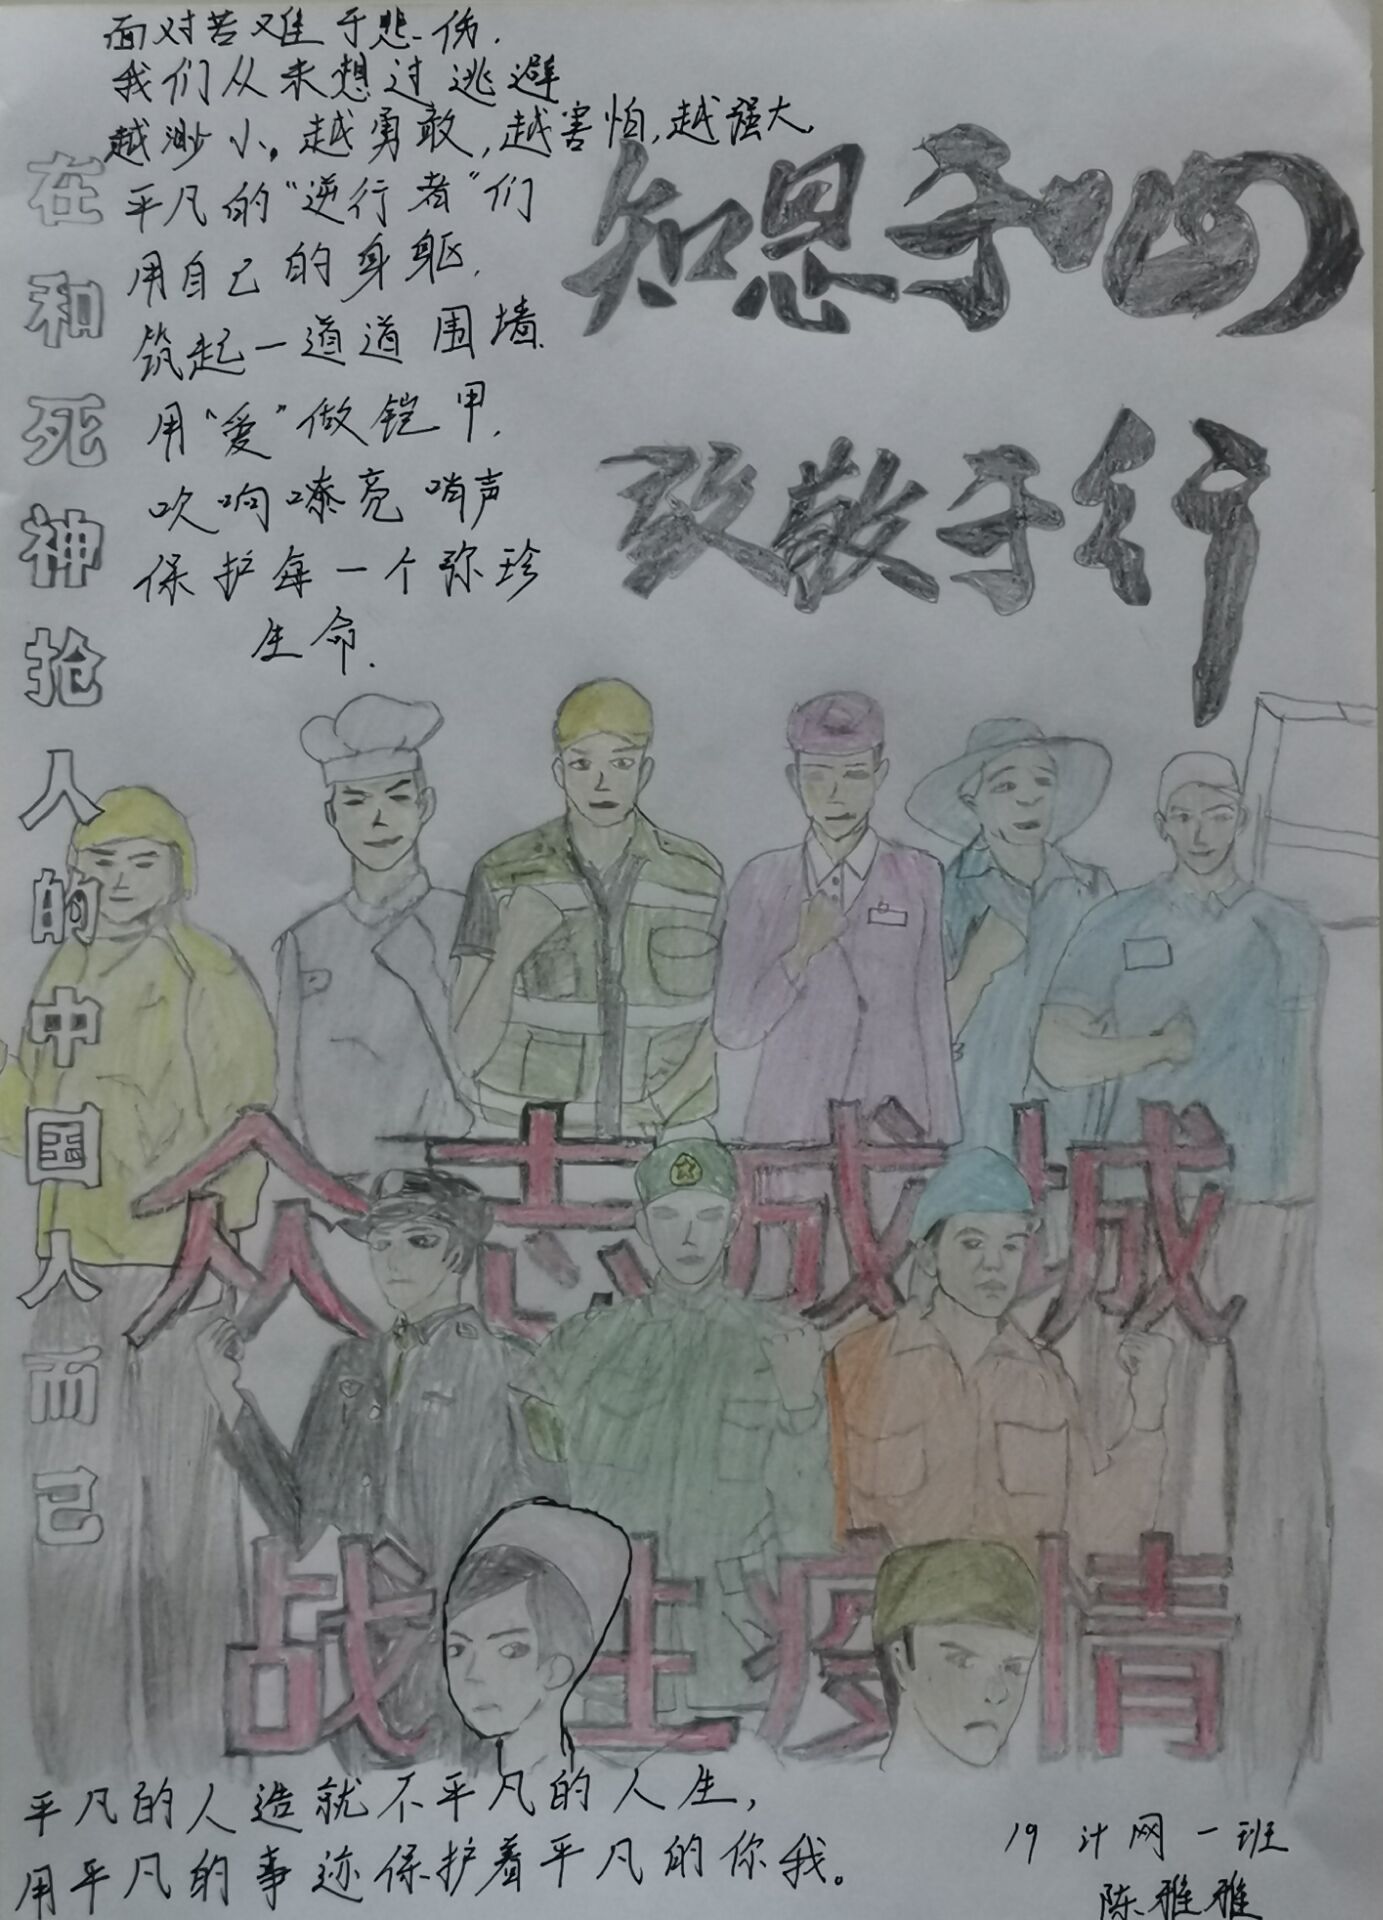 面对苦难于悲伤.
我们从未想过逃避
越渺小。越勇敢,越害怕,越强大,
平凡的“逆行者”们
用自己的身躯.
筑起一道道围墙.
用“爱”做铠甲.
吹响嘹亮哨声
保护每一个弥珍
生命.
知恩于心
致敬于行
在和死神抢人的中国人而已
众志成城
战胜疫情
平凡的人造就不平凡的人生,
用平凡的事迹保护着平凡的你我。
19 计网一班
陈雅雅